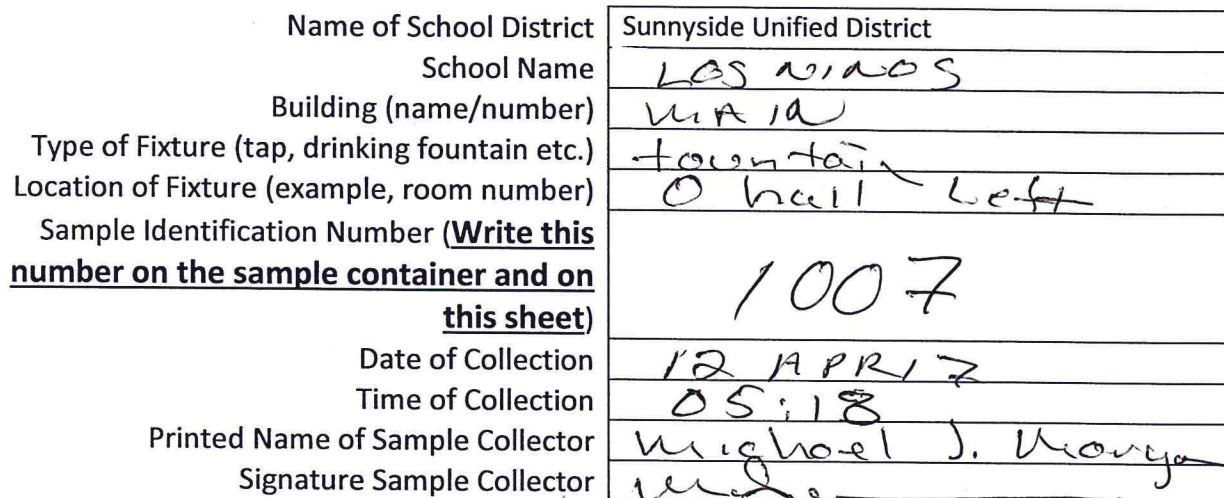 Name of School District Sunnyside Unified District
School Name LOS NINOS
Building (name/number) MAIN
Type of Fixture (tap, drinking fountain etc.) fountain
Location of Fixture (example, room number) O hall Left
Sample Identification Number (Write this
number on the sample container and on
this sheet) 1007
Date of Collection 12 APR 17
Time of Collection 05:18
Printed Name of Sample Collector Michael J.
Signature Sample Collector